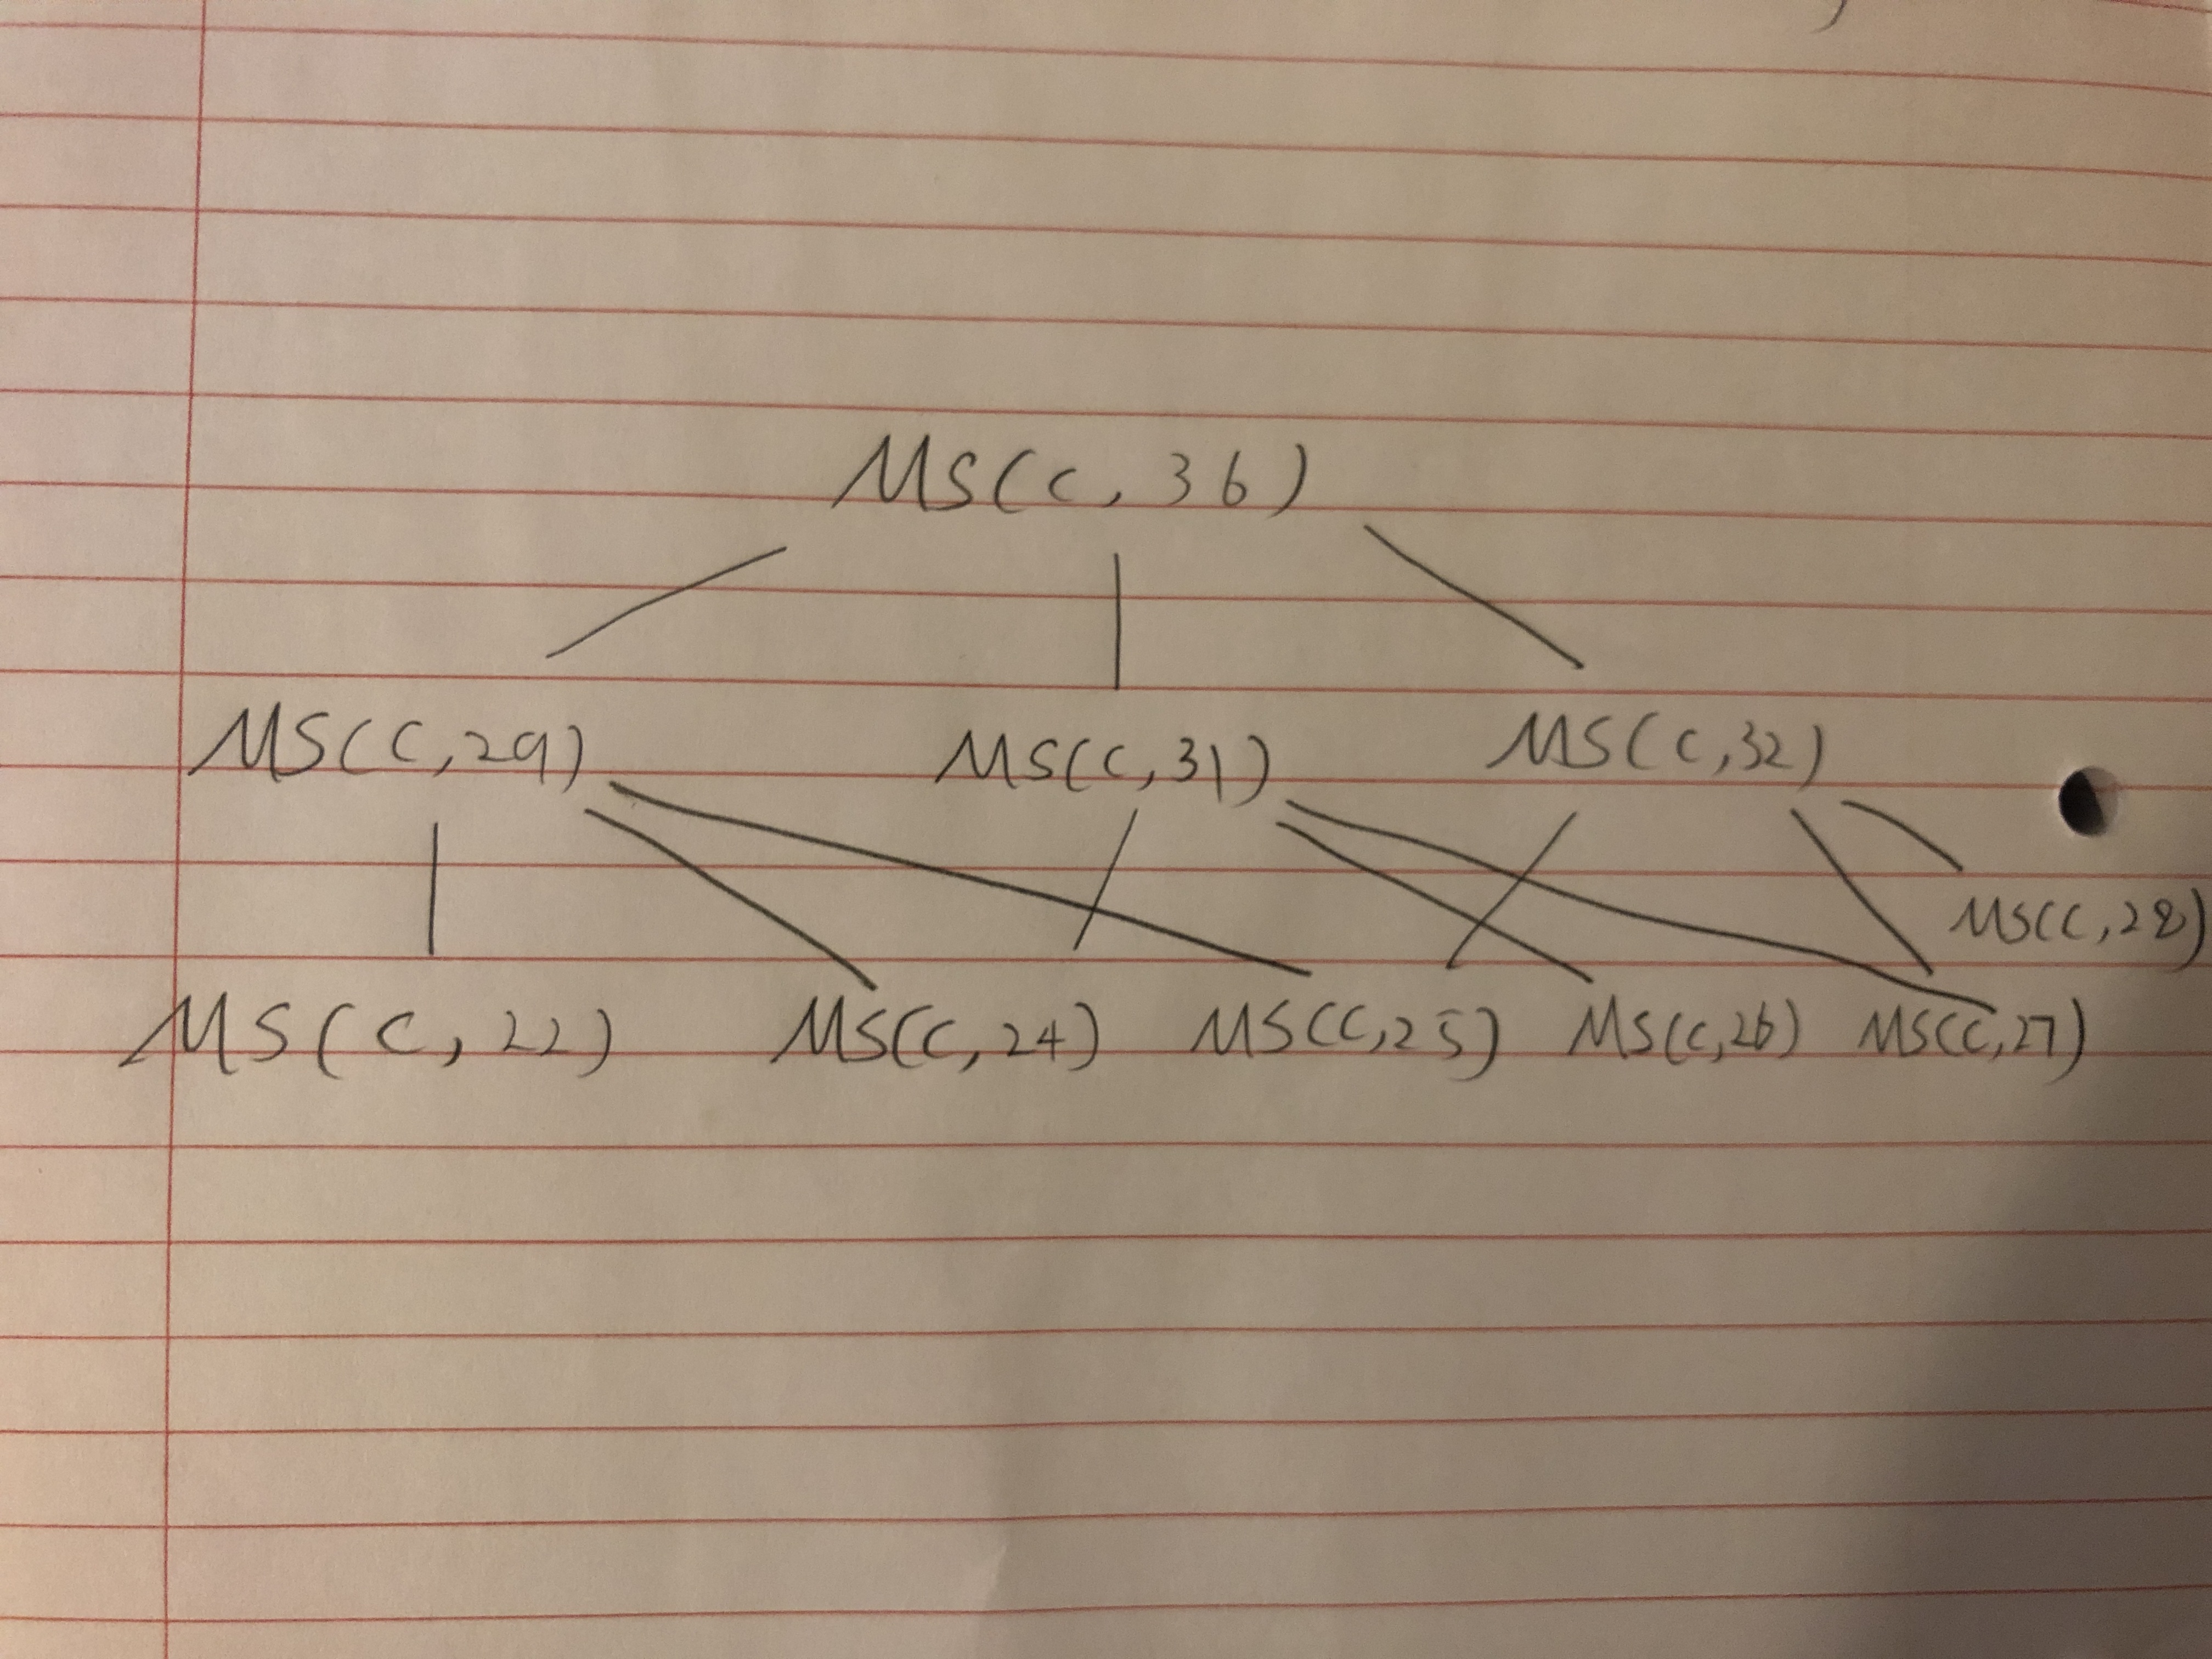 MS(C, 36)
MS(C, 29) MS(C, 31) MS(C, 32)
MS(C, 28)
MS(C, 22) MS(C, 24) MS(C, 25) MS(C, 26) MS(C, 27)